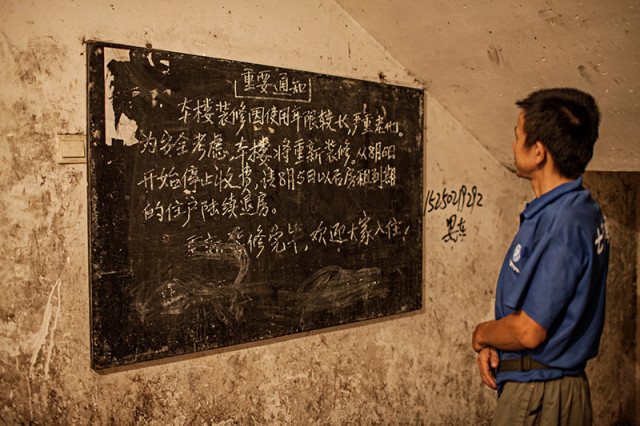 重要通知
本楼装修因使用年限较长严重老化。
为安全考虑 本楼将重新装修。从8月5日
开始停止收费,请8月5日以后房租到期
的住户陆续退房。
装修完毕,欢迎大家入住!
15250219292